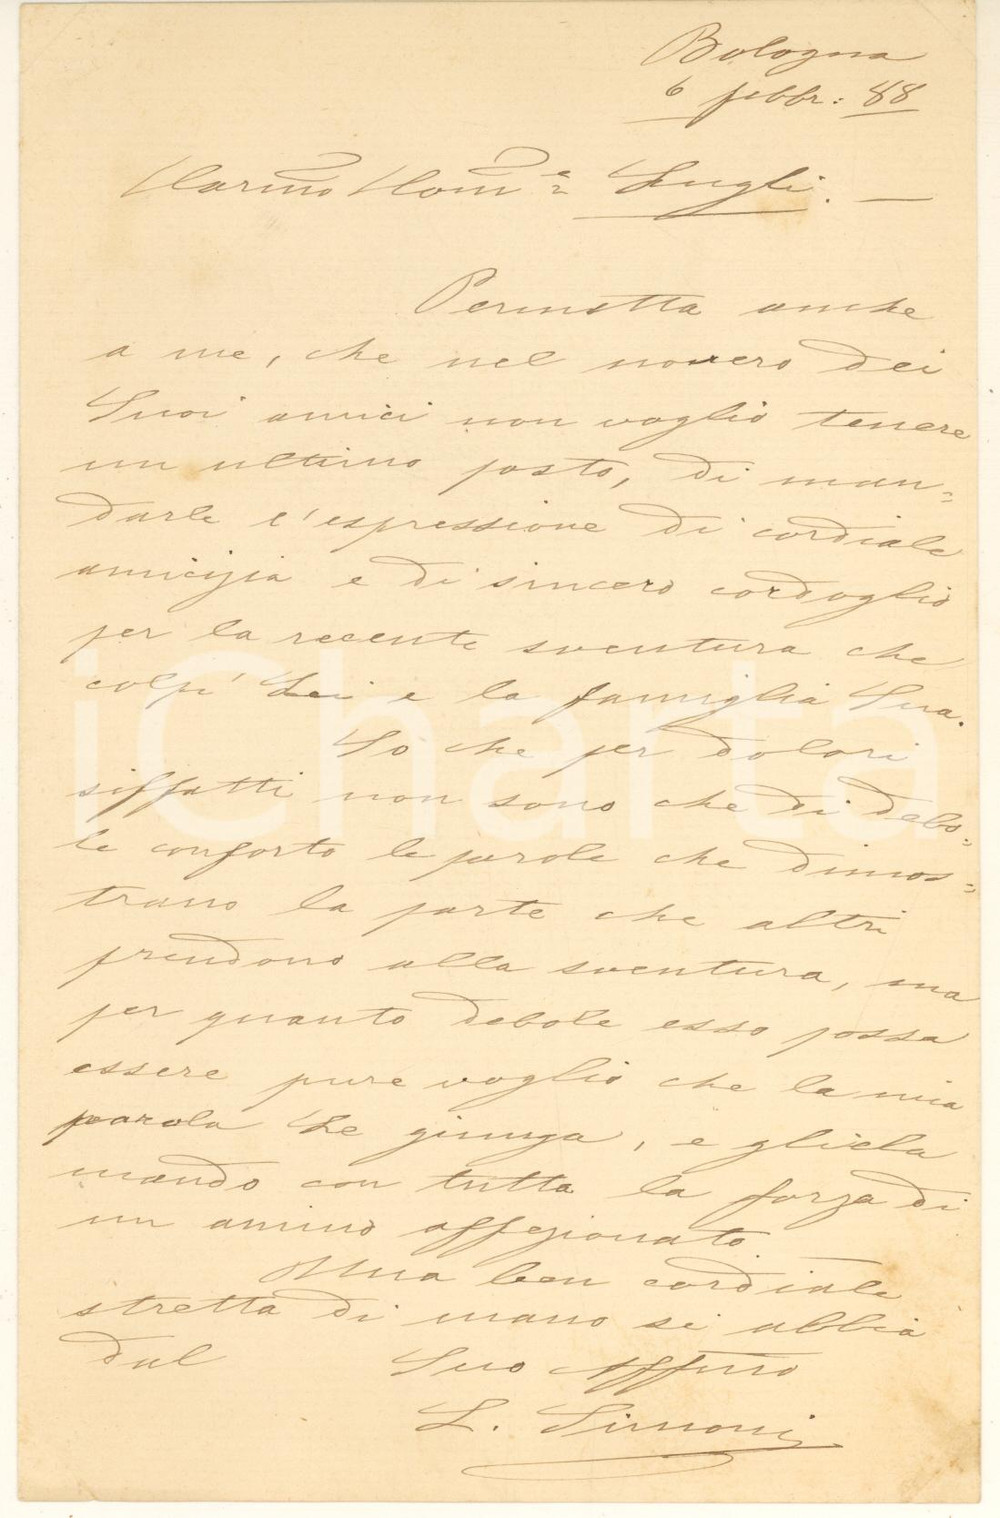 Bologna
6 febbr: 88
Lugli. —
Permetta anche
a me, che nel novero dei
Suoi amici non voglio tenere
un ultimo posto, di man=
darle l'espressione di cordiale
amicizia e di sincero cordoglio
per la recente sventura che
colpì Lei e la famiglia Sua.
So che per dolori
siffatti non sono che di debo=
le conforto le parole che dimos=
trano la parte che altri
prendono alla sventura, ma
per quanto debole esso possa
essere pure voglio che la mia
parola Le giunga, e gliela
mando con tutta la forza di
un animo affezionato.
Una ben cordiale
stretta di mano si abbia
dal Suo Affmo
L. Simoni
iCharta